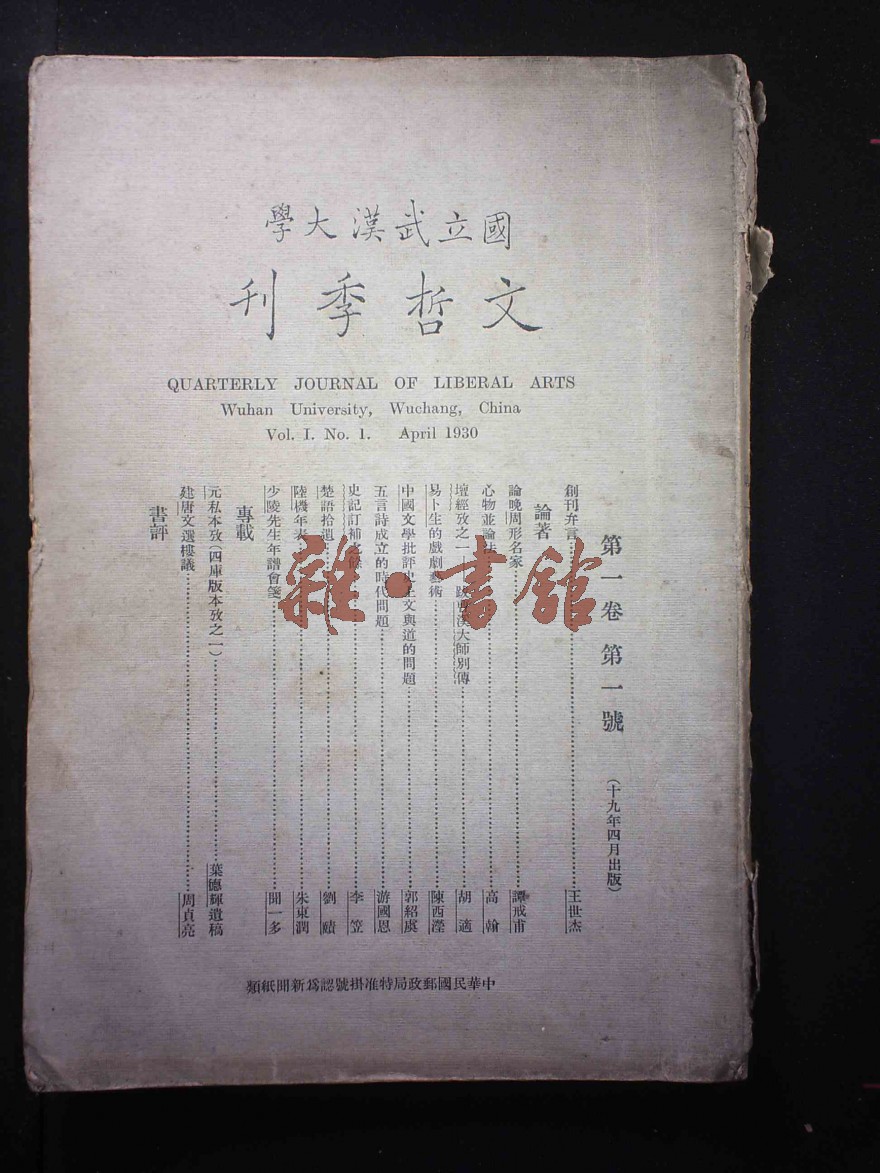 國立武漢大學
文哲季刊
QUARTERLY JOURNAL OF LIBERAL ARTS
Wuhan University, Wuchang, China
Vol. I. No. 1. April 1930
第一卷 第一號 (十九年四月出版)
創刊弁言 王世杰
論著
論晚周形名家 譚戒甫
心物並論 高翰
壇經攷之一 大師別傳 胡適
易卜生的戲劇藝術 陳西瀅
中國文學批評史上文與道的問題 郭紹虞
五言詩成立的時代問題 游國恩
史記訂補之 李笠
楚語拾遺 劉賾
陸機年表 朱東潤
少陵先生年譜會箋 聞一多
專載
元私本攷(四庫版本攷之一) 葉德輝遺稿
建唐文選樓議 周貞亮
書評
中華民國郵政局特准掛號認爲新聞紙類
雜·書館